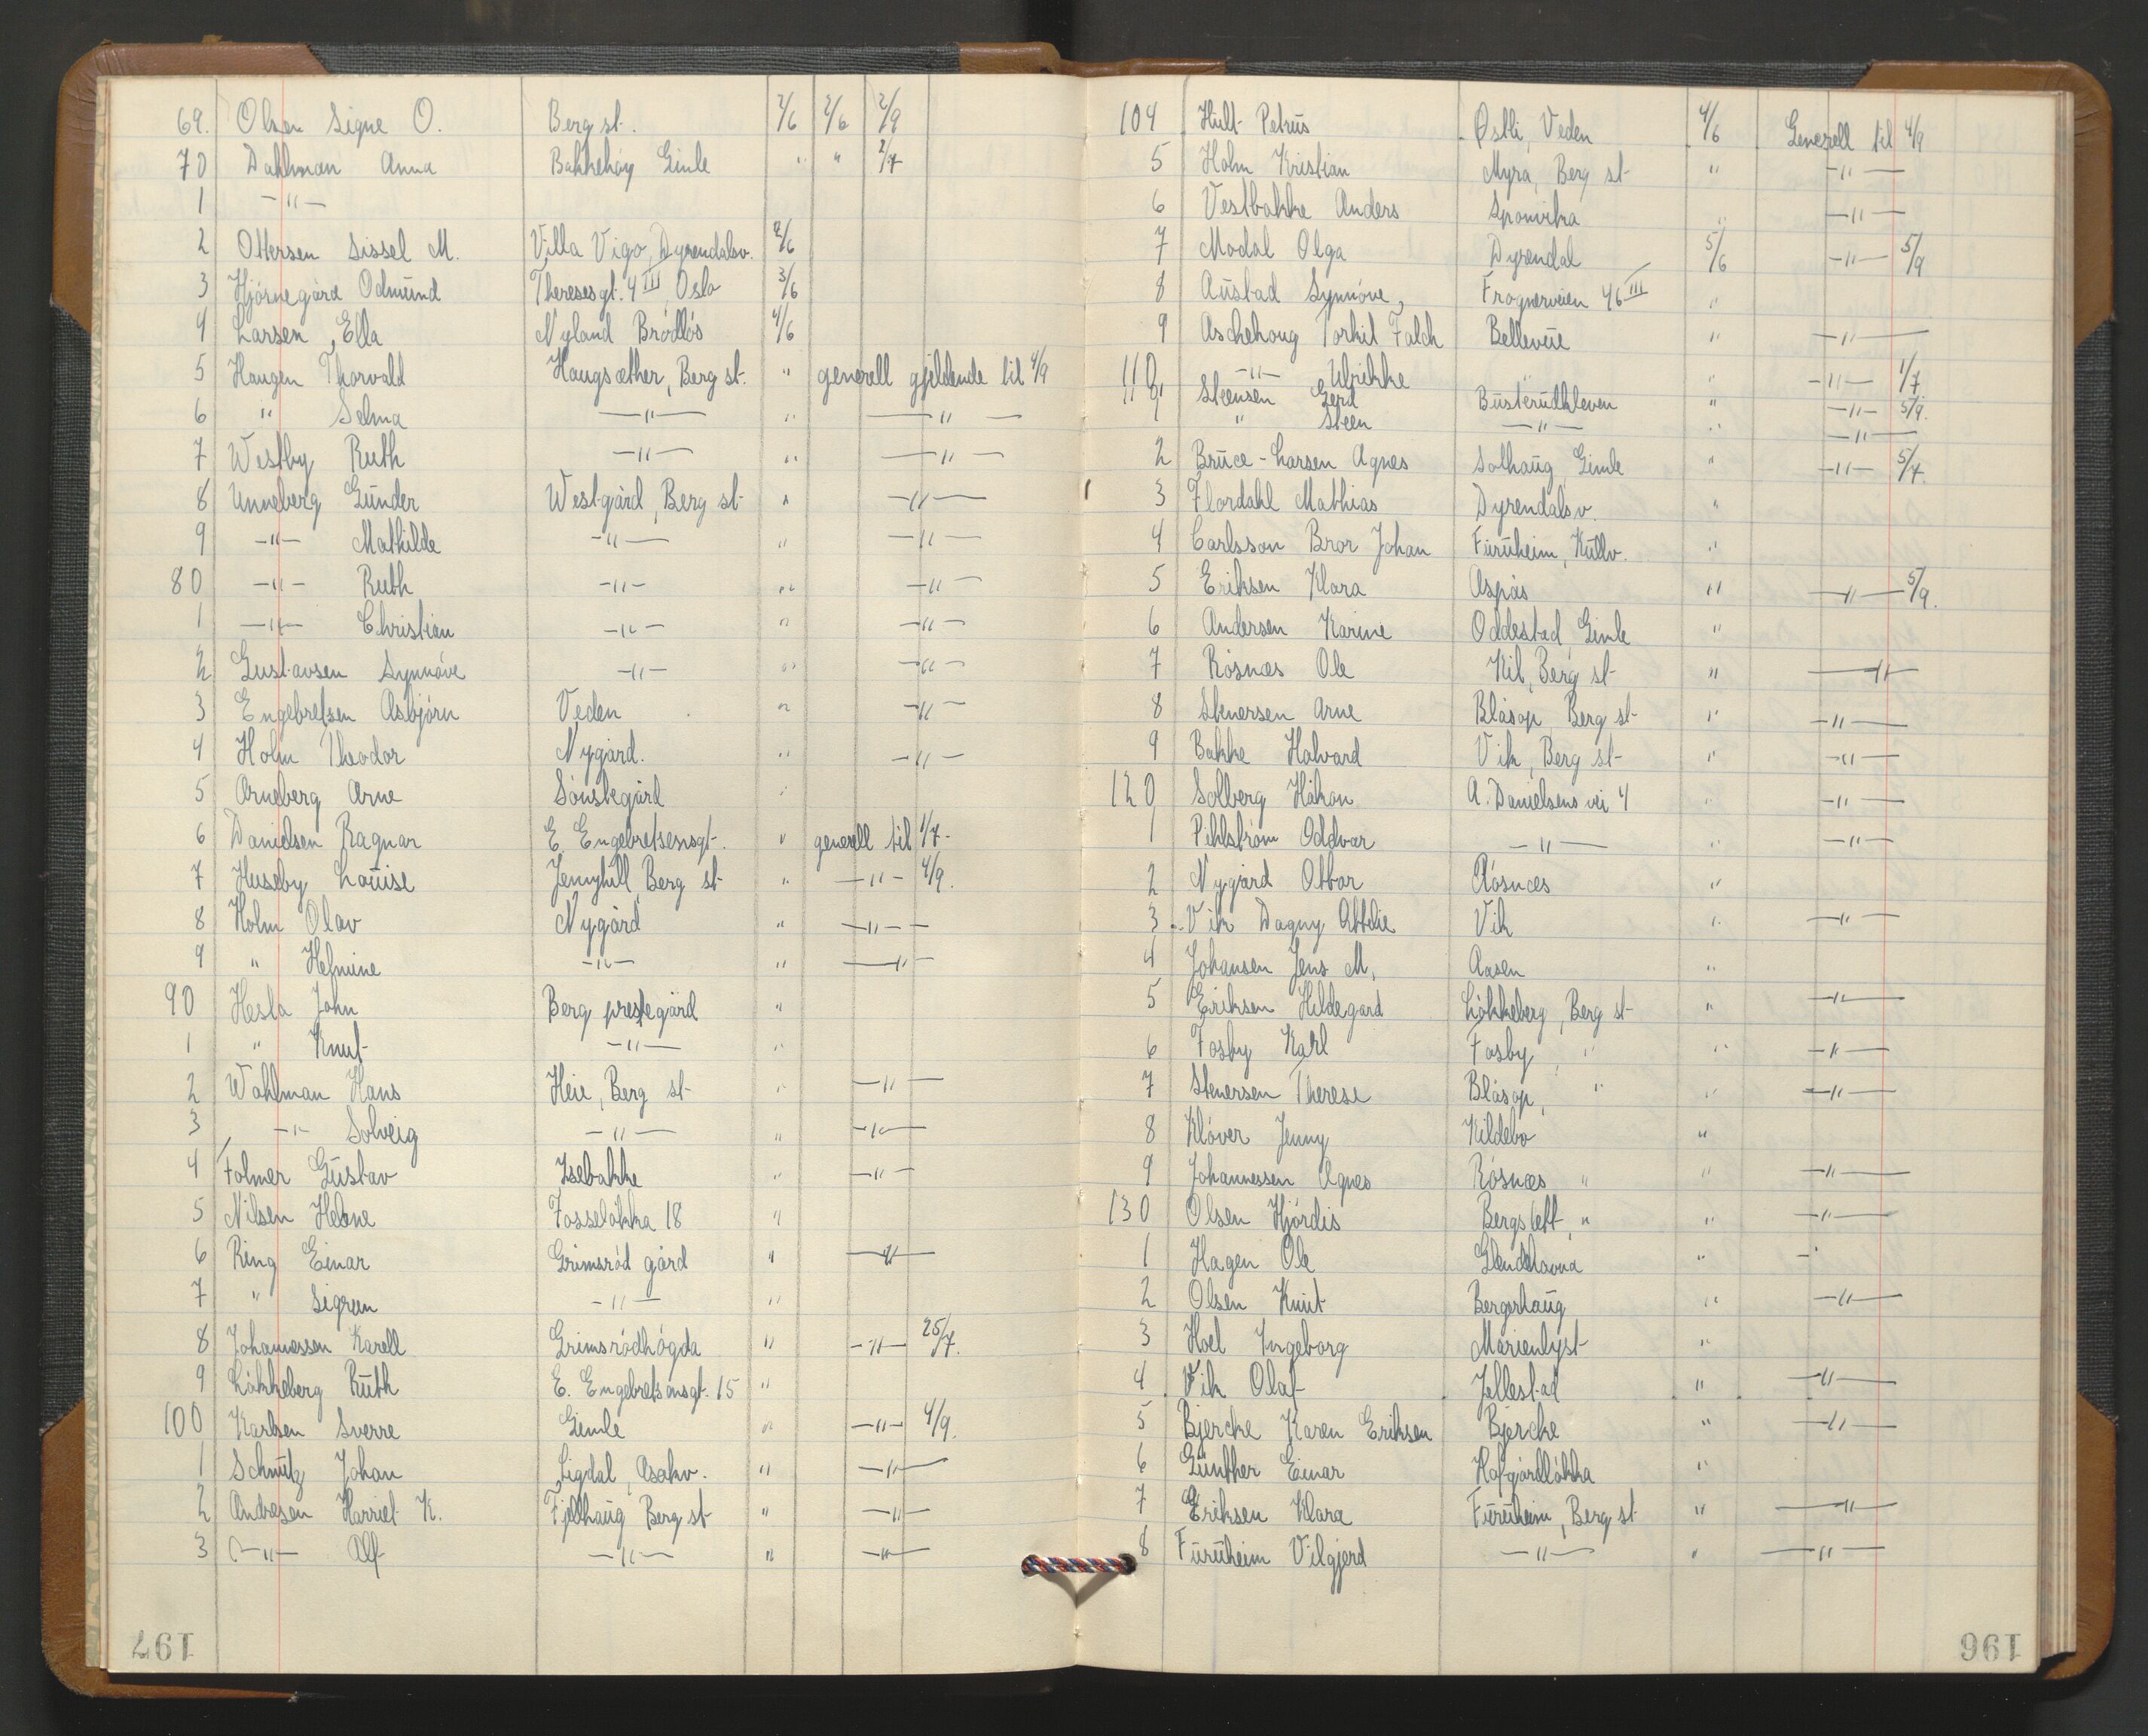 69. Olsen Signe O. Berg st. 2/6 2/6 2/9
70 Dahlman Anna Bakkehøy Gimle " " 2/7
1 -"-
2 Ottersen Sissel M. Villa Vigo, Dyrendalsv. 2/6
3 Hjørnegård Odmund Theresesgt. 4 III, Oslo 3/6
4 Larsen, Ella Nyland Brødløs 4/6
5 Haugen Thorvald Haugsæther, Berg st. " generell gjeldende til 4/9
6 " Selma -"- " -"-
7 Westby Ruth -"- " -"-
8 Unneberg Gunder Westgård, Berg st " -"-
9 -"- Mathilde -"- " -"-
80 -"- Ruth -"- " -"-
1 -"- Christian -"- " -"-
2 Gustavsen Synnøve -"- " -"-
3 Engebretsen Asbjørn Veden " -"-
4 Holm Theodor Nygård. " -"-
5 Arneberg Arne Sønstegård "
6 Danielsen Ragnar E. Engebretsensgt. " generell til 1/7-
7 Huseby Louise Jennyhill, Berg st " -"- 4/9.
8 Holm Olav Nygård " -"-
9 " Helmine -"- " -"-
90 Hesla John Berg prestegård "
1 " Knut -"- "
2 Wahlman Hans Heie, Berg st " -"-
3 -"- Solveig -"- " -"-
4 Folmer Gustav Isebakke " -"-
5 Nilsen Helene Fosseløkka 18 "
6 Ring Einar Grimsrød gård " -"-
7 " Sigrun -"- "
8 Johannessen Karell Grimsrødhøgda " -"- 25/7.
9 Løkkeberg Ruth E. Engebretsensgt. 15 "
100 Karlsen Sverre Gimle " -"- 4/9.
1 Schmutz Johan Ligdal, Asakv. " -"-
2 Andresen Harriet K. Fjellhaug Berg st " -"-
3 -"- Alf -"- " -"-
197
104 Hult Petrus Østli, Veden 4/6 Generell til 4/9
5 Holm Kristian Myra, Berg st " -"-
6 Vestbakke Anders Sponvika " -"-
7 Modal Olga Dyrendal 5/6 -"- 5/9
8 Austad Synnøve, Frognerveien 46 III "
9 Aschehoug Torkil Falch Bellevue " -"-
110 -"- Ulrikke " " -"- 1/7
110 Steensen Gerd Busterudkleven " -"- 5/9.
1 " Steen -"- " -"-
2 Bruce-Larsen Agnes Solhaug, Gimle " -"- 5/7.
3 Flordahl Mathias Dyrendalsv. "
4 Carlsson Bror Johan Furuheim, Kullv. "
5 Eriksen Klara Aspås " -"- 5/9.
6 Andersen Karine Oddestad, Gimle "
7 Røsnæs Ole Kil, Berg st " -"-
8 Stenersen Arne Blåsop, Berg st " -"-
9 Bakke Halvard Vik, Berg st " -"-
120 Solberg Håkon A. Danielsens vei 4 " -"-
1 Pihlstrøm Oddvar -"- " -"-
2 Nygård Ottar Røsnæs "
3 Vik Dagny Ottilie Vik " -"-
4 Johansen Jens M. Aasen "
5 Eriksen Hildegard Løkkeberg, Berg st " -"-
6 Fosby Karl Fosby, " " -"-
7 Stenersen Therese Blåsop, " " -"-
8 Kløver Jenny Kildebo "
9 Johannessen Agnes Røsnæs " " -"-
130 Olsen Hjørdis Bergslett, " " -"-
1 Hagen Ole "
2 Olsen Knut Bergerhaug " -"-
3 Hoel Ingeborg Marienlyst "
4 Vik Olaf Jellestad " -"-
5 Bjercke Karen Eriksen Bjercke " -"-
6 Günther Einar Hofgårdløkka "
7 Eriksen Klara Furuheim, Berg st " -"-
8 Furuheim Vilgjerd -"- " -"-
196